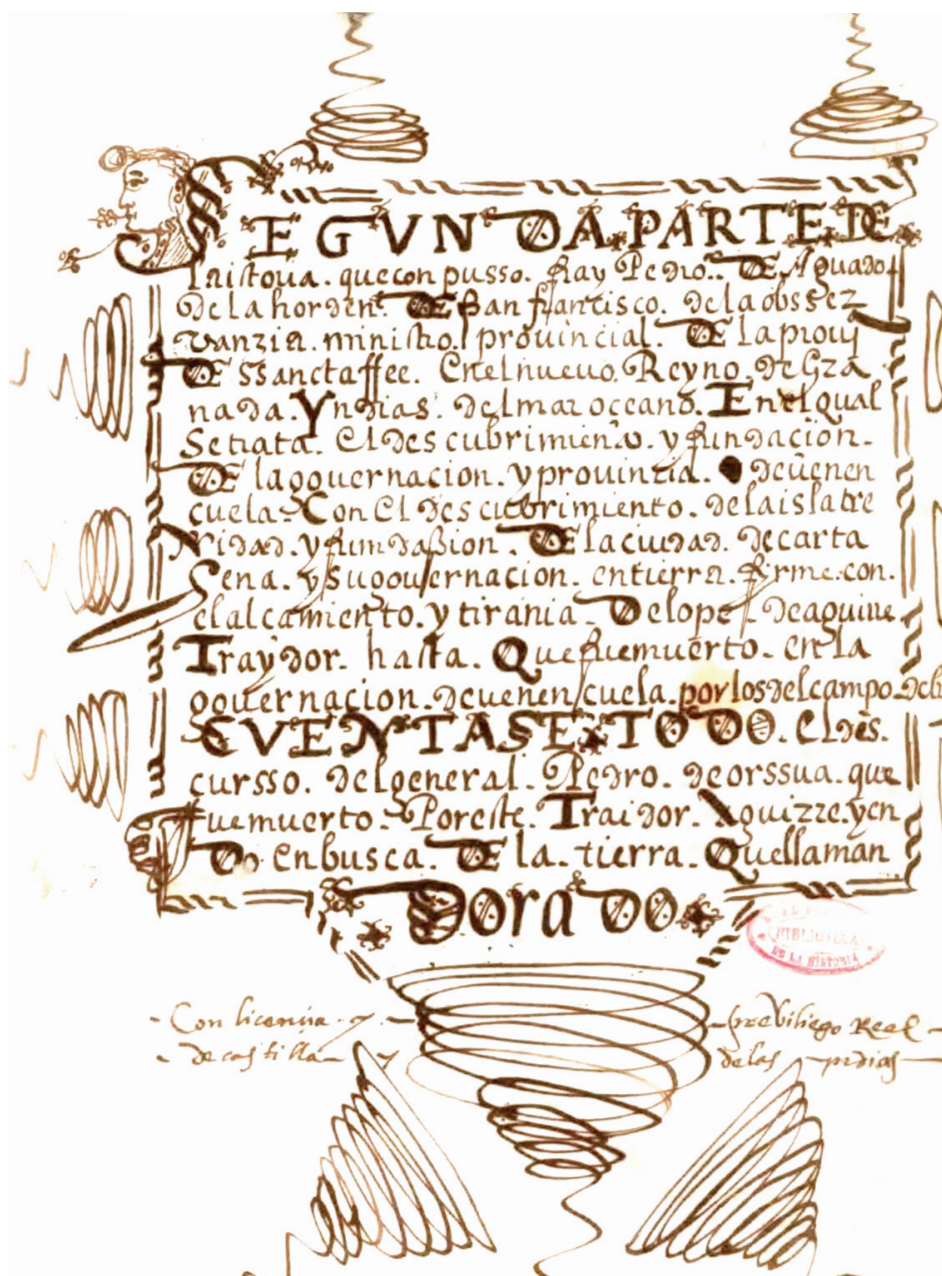 SEGVNDA PARTE DE
la istoria. que conpusso. fray Pedro. DE Aguado
de la horden. DE san francisco. de la obsser
vanzia. ministro. provincial. DE la provi
DE ssanctaffee. En el nuevo. Reyno. de Gra
nada. Yndias. del mar oceano. En el qual
se trata. El descubrimiento. y fundacion.
DE la governacion. y provinzia. de venen
cuela. Con El descubrimiento. de la isla tre
nidad. y fundassion. DE la ciudad. de carta
Gena. y su governacion. en tierra. firme. con.
el alcamiento. y tirania. De lope. de aguirre
Traydor. hasta. Que fue muerto. en la
governacion. de venencuela. por los del campo. del
CVENTASE TODO. El des.
cursso. del general. Pedro. de orssua. que
fue muerto. Por este. Traidor. Aguirre. yen
Do. en busca. DE la. tierra. Que llaman
Dorado
- Con licencia. y. - previllegio Real -
- de castilla - y de las yndias -
BIBLIOTECA
DE LA HISTORIA